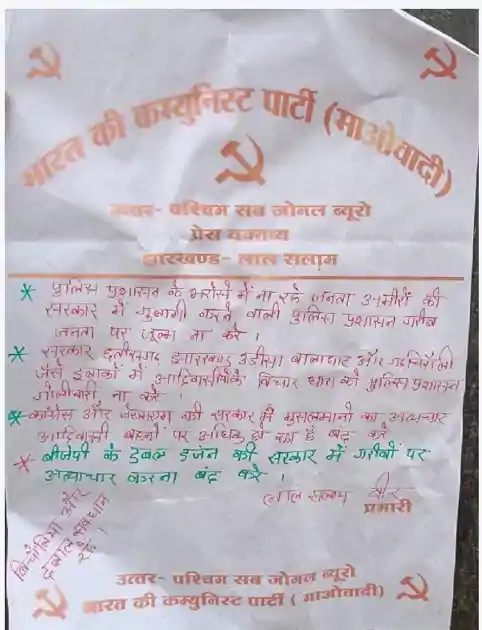 भारत की कम्युनिस्ट पार्टी (माओवादी)
उत्तर- पश्चिम सब जोनल ब्यूरो
प्रेस वक्तव्य
झारखण्ड- लाल सलाम
* पुलिस प्रशासन के भरोसे में ना रहे जनता अमीरों की
सरकार में गुलामी करने वाली पुलिस प्रशासन गरीब
जनता पर जुल्म ना करे ।
* सरकार छत्तीसगढ़ झारखण्ड उडीसा बालाघाट और गढ़चिरौली
जैसे इलाकों में आदिवासियों के विचार धारा को पुलिस प्रशासन
गोलीबारी ना करे ।
* कांग्रेस और की सरकार में मुसलमानो का अत्याचार
आदिवासी बहनों पर अधिक हो रहा है बंद करे
* बीजेपी के डबल इंजन की सरकार में गरीबों पर
अत्याचार करना बंद करे ।
लाल सलाम वीर
प्रभारी
बिचौलिया और
दलाल सावधान
रहे ।
उत्तर- पश्चिम सब जोनल ब्यूरो
भारत की कम्युनिस्ट पार्टी ( माओवादी )